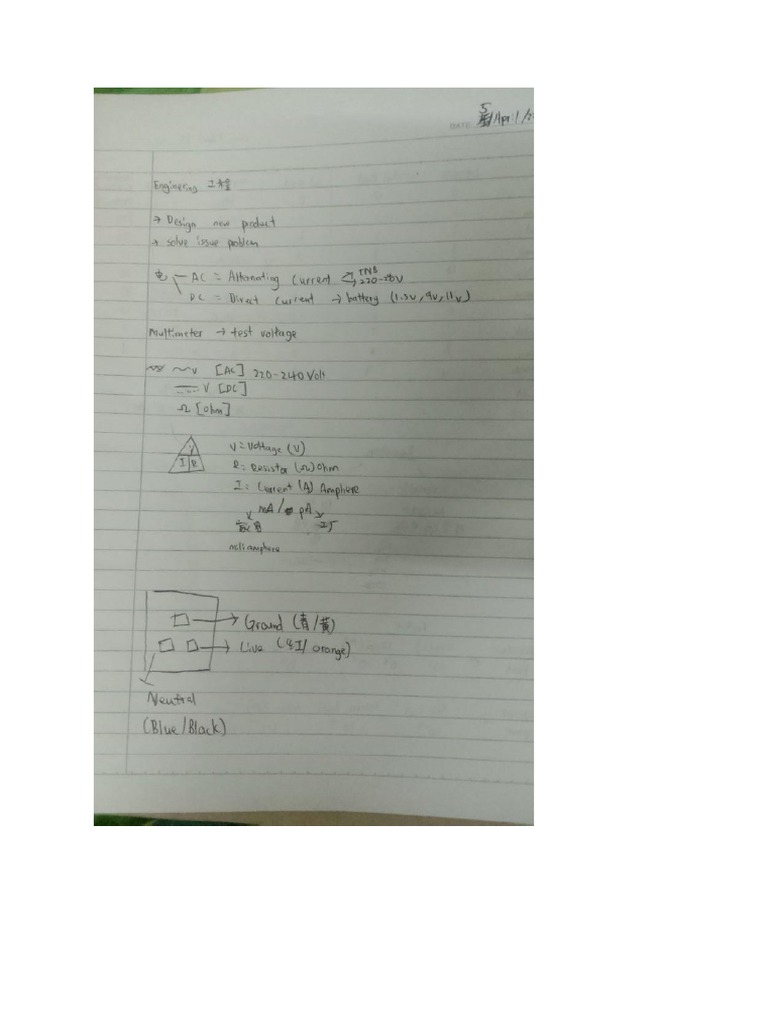 5
DATE: April/2
Enginering 工程
→ Design new product
→ solve issue problem
电 AC = Alternating Current → TNB
→ 220-240V
DC = Direct current → battery (1.5v, 9v, 11v)
Multimeter → test voltage
~ V [AC] 220-240 Volt
V [DC]
Ω [ohm]
V
I R
V = Voltage (V)
R = Resistor (Ω) Ohm
I = Current (A) Amphere
mA / pA
mili amphere
→ Ground (青/黄)
→ Live (红/orange)
Neutral
(Blue/Black)